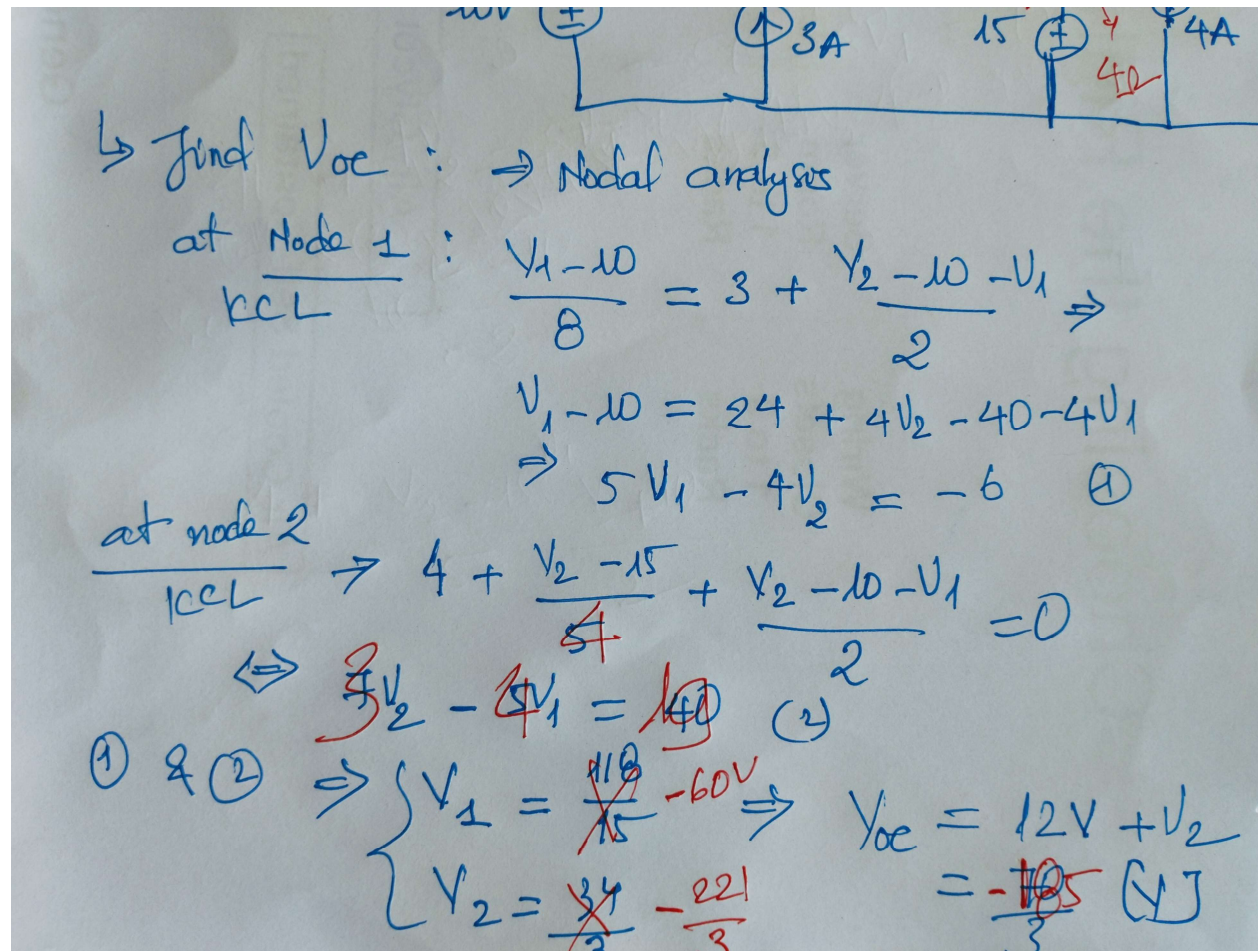 10V 3A 15 4A
4Ω
↳ Find Voc : ⇒ Nodal analysis
at Node 1 : (V1 - 10)/8 = 3 + (V2 - 10 - V1)/2 ⇒
KCL
V1 - 10 = 24 + 4V2 - 40 - 4V1
⇒ 5V1 - 4V2 = -6 ①
at node 2
KCL → 4 + (V2 - 15)/4 + (V2 - 10 - V1)/2 = 0
⇔ 3V2 - 4V1 = 19 (2)
① & ② ⇒ { V1 = 118/15 -60V ⇒ Voc = 12V + V2
V2 = 34/3 -221/3 = -185/3 [V]